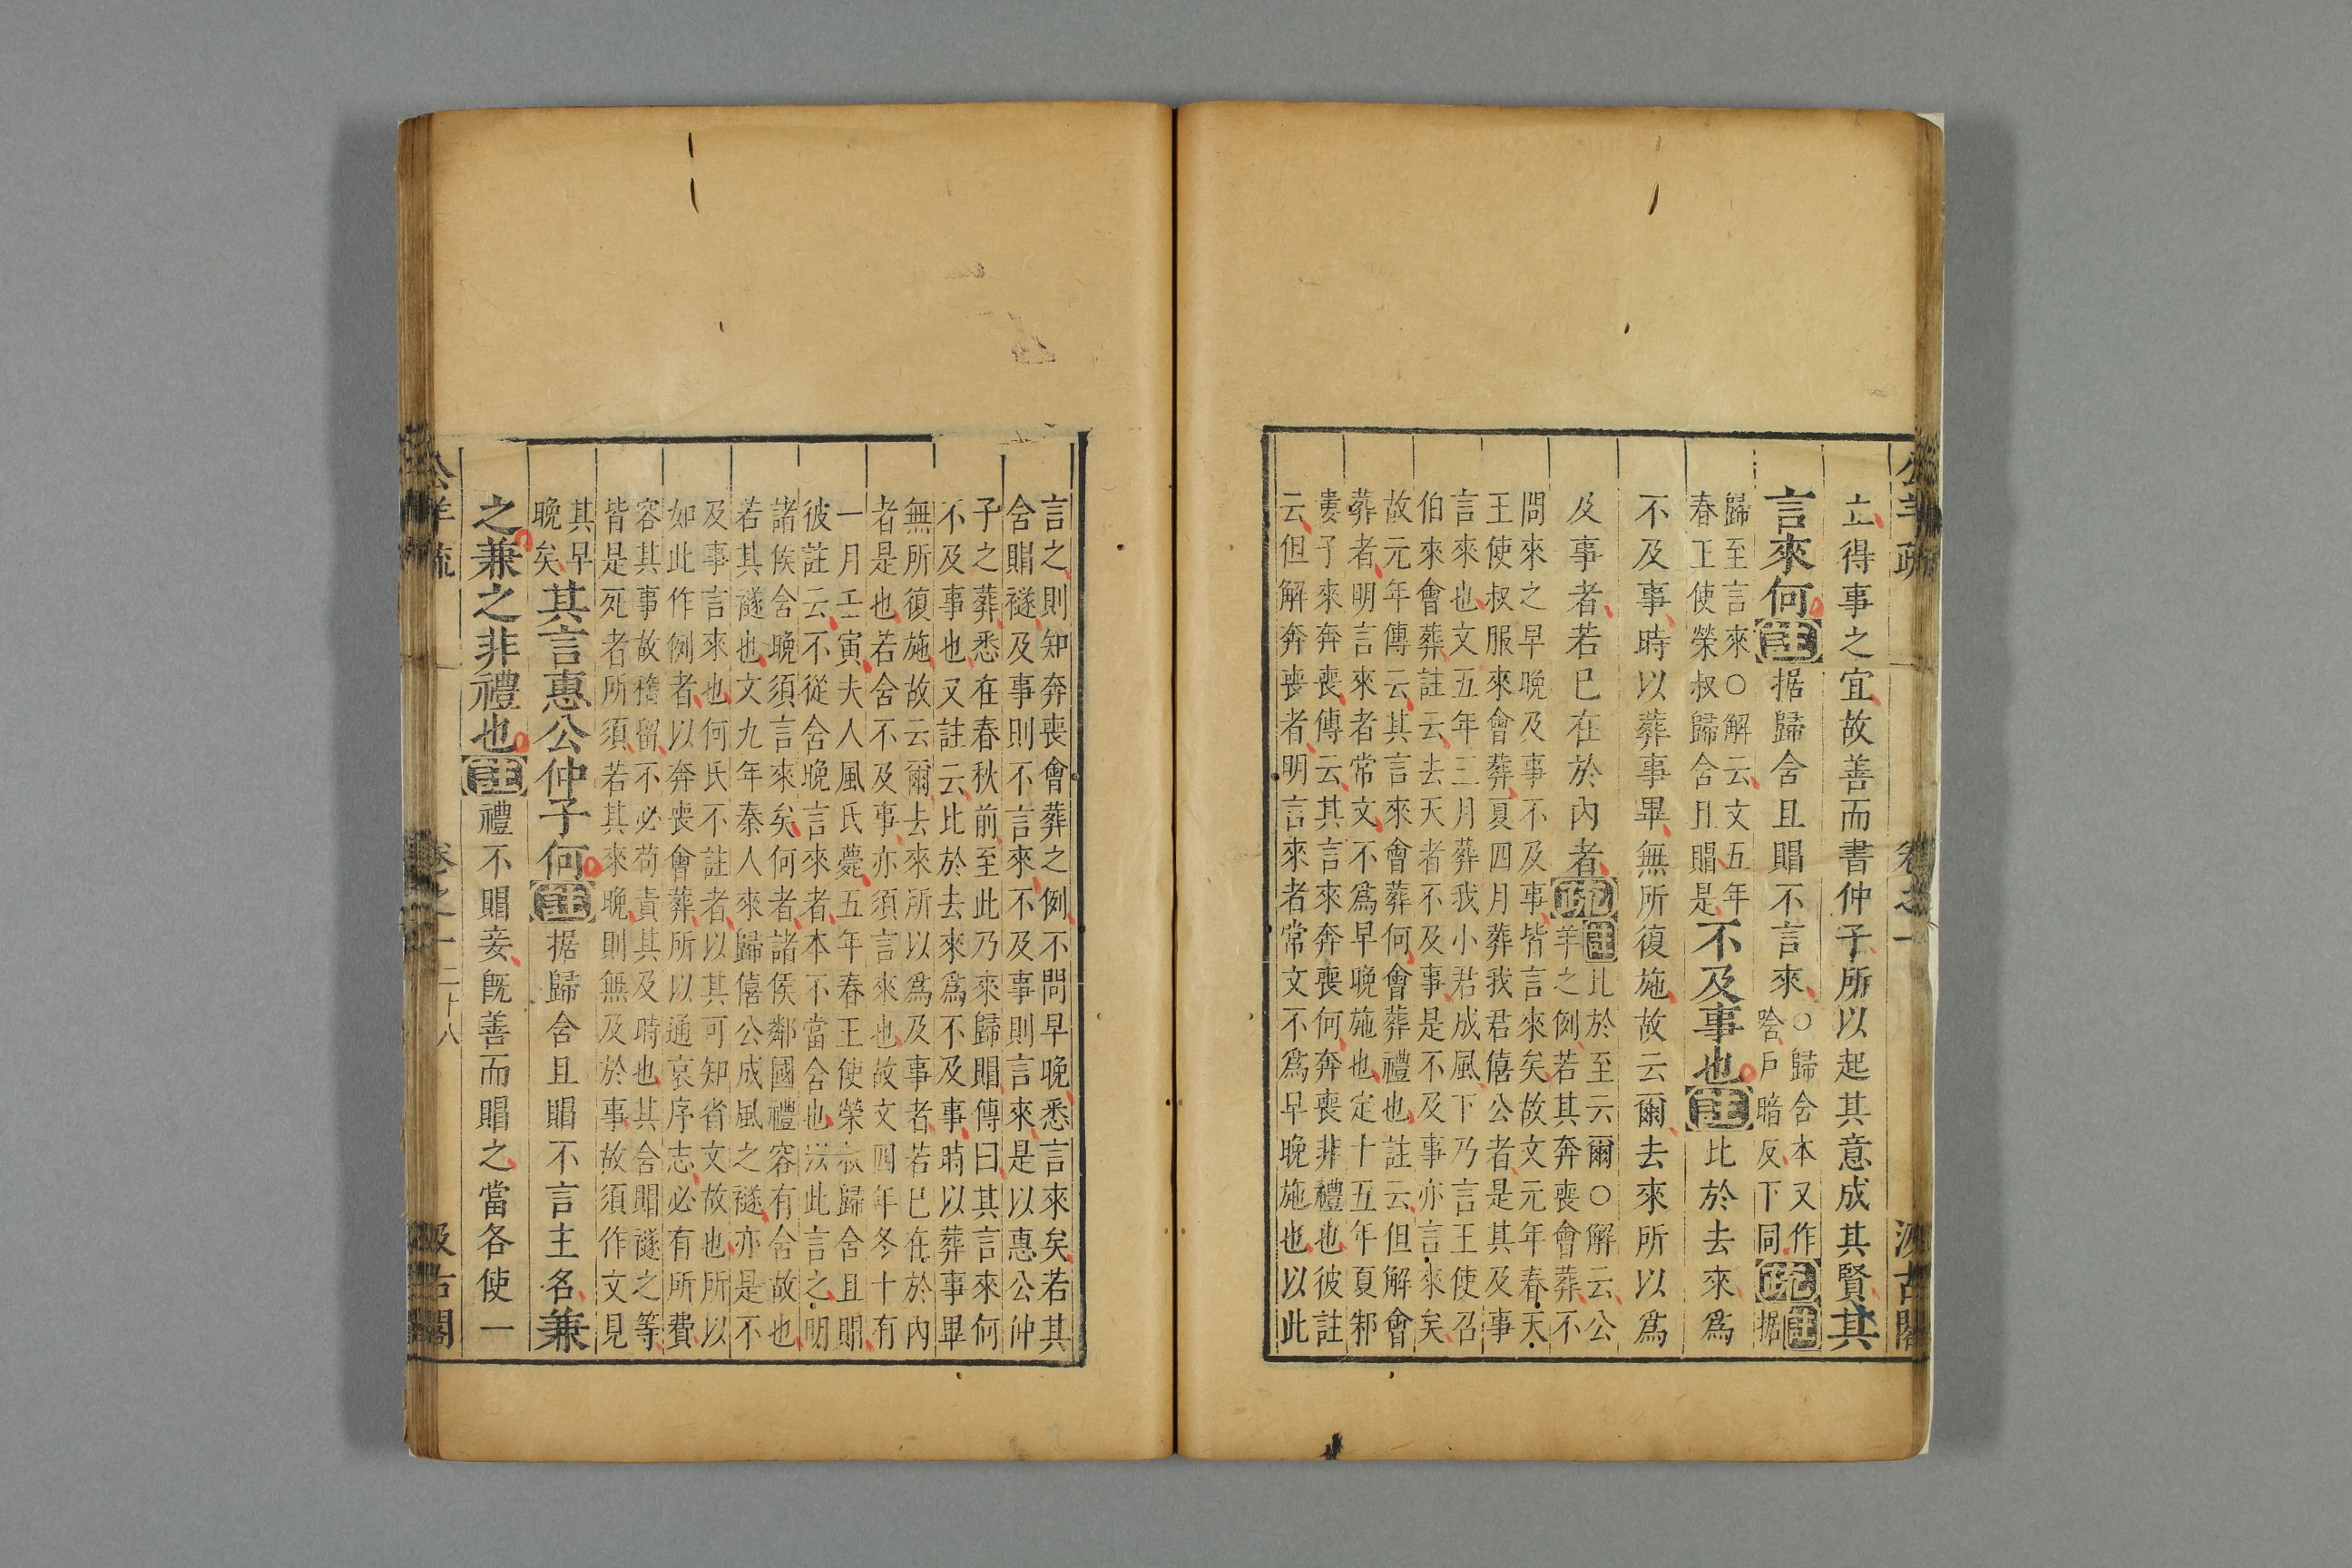 公羊疏 卷之一 汲古閣
立得事之宜故善而書仲子所以起其意成其賢其
言來何註据歸含且賵不言來○歸含本又作
唅戶暗反下同疏註据
歸至言來○解云文五年
春王使榮叔歸含且賵是不及事也註比於去來爲
不及事時以葬事畢無所復施故云爾去來所以爲
及事者若已在於內者疏註比於至云爾○解云公
羊之例若其奔喪會葬不
問來之早晚及事不及事皆言來矣故文元年春天
王使叔服來會葬夏四月葬我君僖公者是其及事
言來也文五年三月葬我小君成風下乃言王使召
伯來會葬註云去天者不及事是不及事亦言來矣
故元年傳云其言來會葬何會葬禮也註云但解會
葬者明言來者常文不爲早晚施也定十五年夏邾
婁子來奔喪傳云其言來奔喪何奔喪非禮也彼註
云但解奔喪者明言來者常文不爲早晚施也以此
言之則知奔喪會葬之例不問早晚悉言來矣若其
含賵襚及事則不言來不及事則言來是以惠公仲
子之葬悉在春秋前至此乃來歸賵傳曰其言來何
不及事也又註云比於去來爲不及事時以葬事畢
無所復施故云爾去來所以爲及事者若已在於內
者是也若含不及事亦須言來也故文四年冬十有
一月壬寅夫人風氏薨五年春王使榮叔歸含且賵
彼註云不從含晚言來者本不當含也以此言之明
諸侯含晚須言來矣何者諸侯鄰國禮容有含故也
若其襚也文九年秦人來歸僖公成風之襚亦是不
及事言來也何氏不註者以其可知省文故也所以
如此作例者以奔喪會葬所以通哀序志必有所費
容其事故稽留不必苟責其及時也其含賵襚之等
皆是死者所須若其來晚則無及於事故須作文見
其早
晚矣其言惠公仲子何註据歸含且賵不言主名兼
之兼之非禮也註禮不賵妾旣善而賵之當各使一
公羊疏 卷之一 二十八 汲古閣